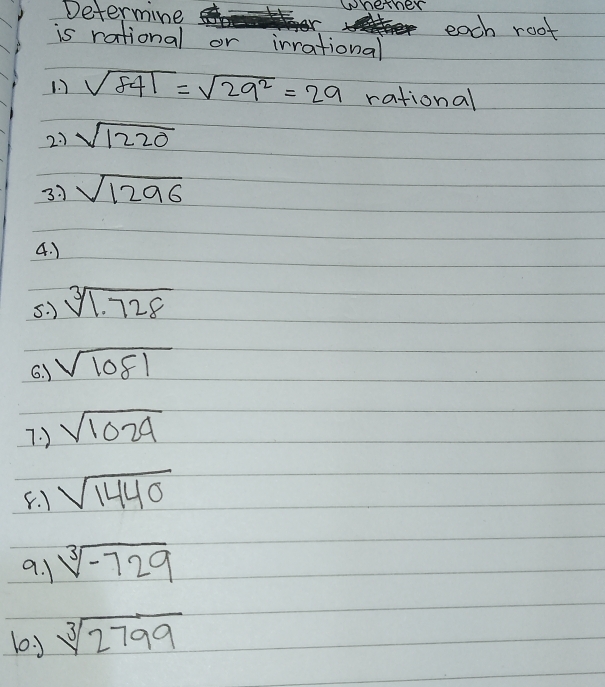 Determine whether each root
is rational or irrational
1.) √841 = √29² = 29 rational
2.) √1220
3.) √1296
4.)
5.) ∛1.728
6.) √1081
7.) √1029
8.) √1440
9.) ∛-729
10.) ∛2799